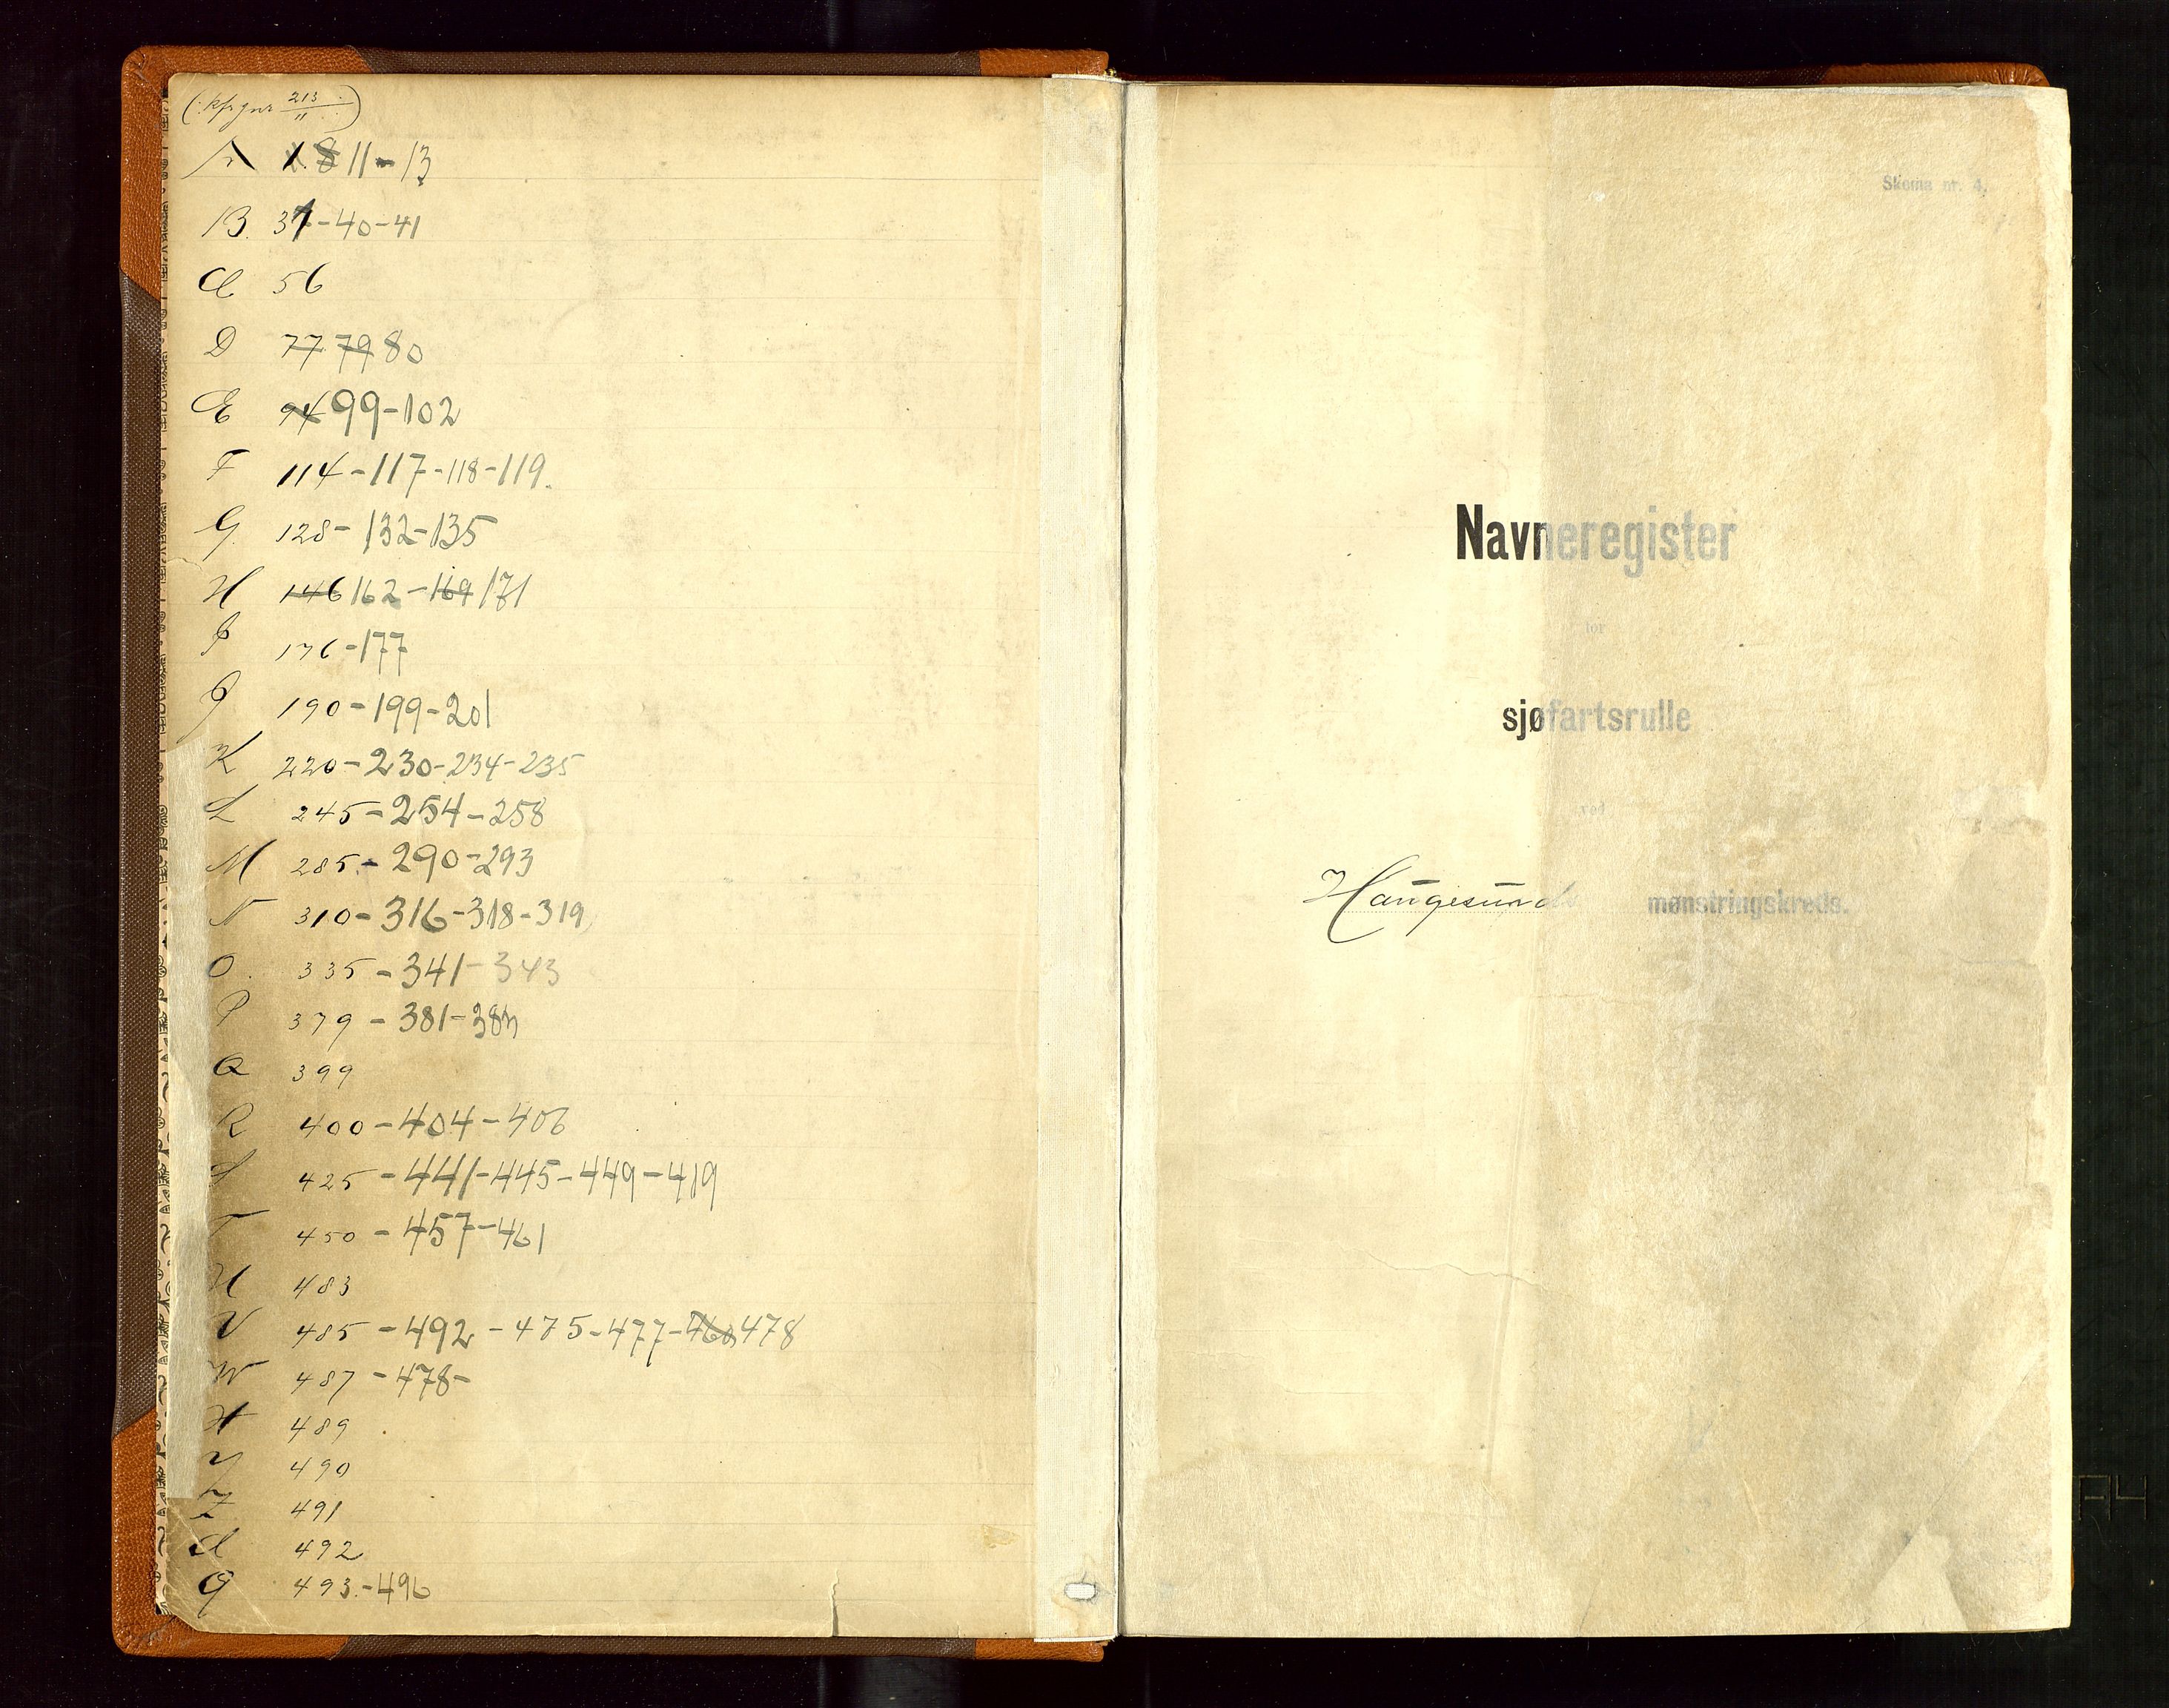 213
A 1. 8 11-13
B. 37-40-41
C 56
D 77 79 80
E 94 99-102
F 114-117-118-119.
G 128-132-135
H 146 162-169 171
I 176-177
J 190-199-201
K 220-230-234-235
L 245-254-258
M 285-290-293
N 310-316-318-319
O. 335-341-343
P 379-381-383
Q 399
R 400-404-406
S 425-441-445-449-419
T 450-457-461
U 483
V 485-492-475-477-460 478
W 487-478-
X 489
Y 490
Z 491
492
Ø 493.-496
Skema nr. 4.
Navneregister
for
sjøfartsrulle
ved
Haugesunds mønstringskreds.